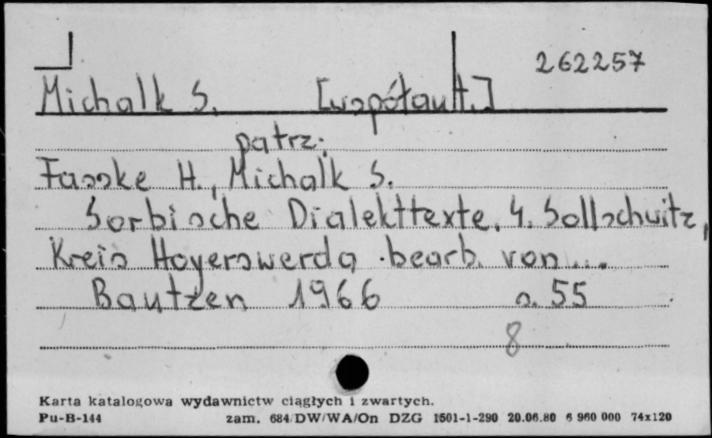 262257
Michalk S. [współaut.]
patrz:
Fasske H., Michalk S.
Sorbische Dialekttexte. 4. Sollschwitz,
Kreis Hoyerswerda. bearb. von...
Bautzen 1966 s. 55
8
Karta katalogowa wydawnictw ciągłych i zwartych.
Pu-B-144 zam. 684/DW/WA/On DZG 1501-1-290 20.06.80 6 960 000 74x120